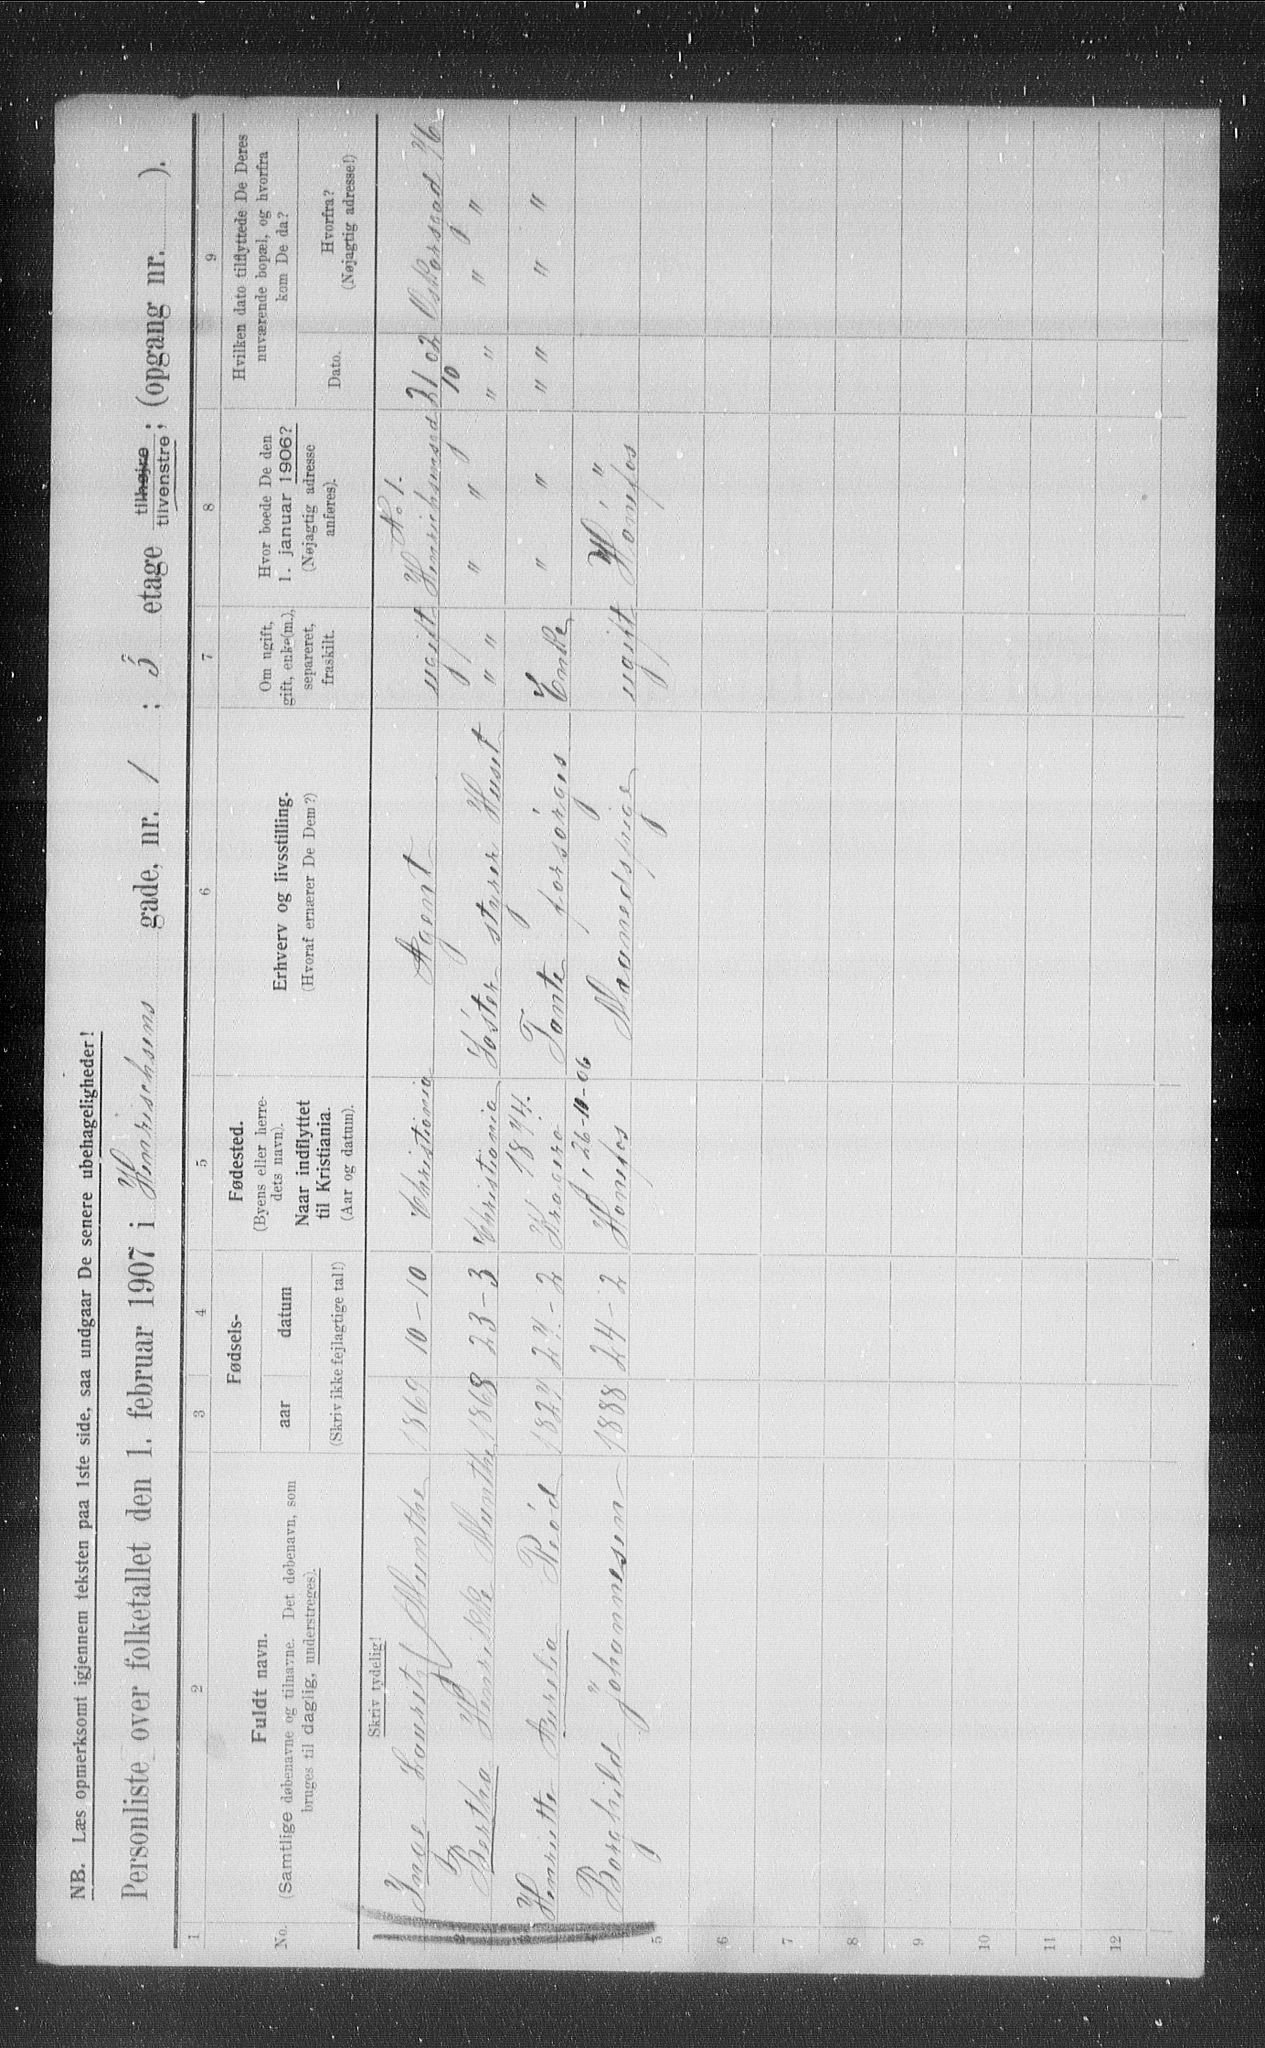 NB. Læs opmerksomt igjennem teksten paa 1ste side, saa undgaar De senere ubehageligheder!
Personliste over folketallet den 1. februar 1907 i Henrichsens gade, nr. 1 ; 3 etage tilhøjre tilvenstre ; (opgang nr. ).
1 2 3 4 5 6 7 8 9
No.
Fuldt navn.
(Samtlige døbenavne og tilnavne. Det døbenavn, som
bruges til daglig, understreges).
Fødsels-
aar datum
(Skriv ikke fejlagtige tal!)
Fødested.
(Byens eller herre-
dets navn).
Naar indflyttet
til Kristiania.
(Aar og datum).
Erhverv og livsstilling.
(Hvoraf ernærer De Dem?)
Om ugift,
gift, enke(m.),
separeret,
fraskilt.
Hvor boede De den
1. januar 1906?
(Nøjagtig adresse
anføres).
Hvilken dato tilflyttede De Deres
nuværende bopæl, og hvorfra
kom De da?
Dato.
Hvorfra?
(Nøjagtig adresse!)
Skriv tydelig!
No 1.
Inge Lauritz Munthe 1869 10-10 Christiania Agent ugift Henrichsensgd 21/10 02 Oskarsgad 76
2 Bertha Henrikke Munthe 1868 23-3 Christiania Søster styrer Huset " " " " " " " "
K. 1844.
3 Henriette Aurelia Riód 1824 27-2 Kragerø Tante forsørges Enke " " " " " "
26-11-06
4 Borghild Johannesen 1888 24-2 Hønefos Maanedspige ugift Hønefos
5
6
7
8
9
10
11
12